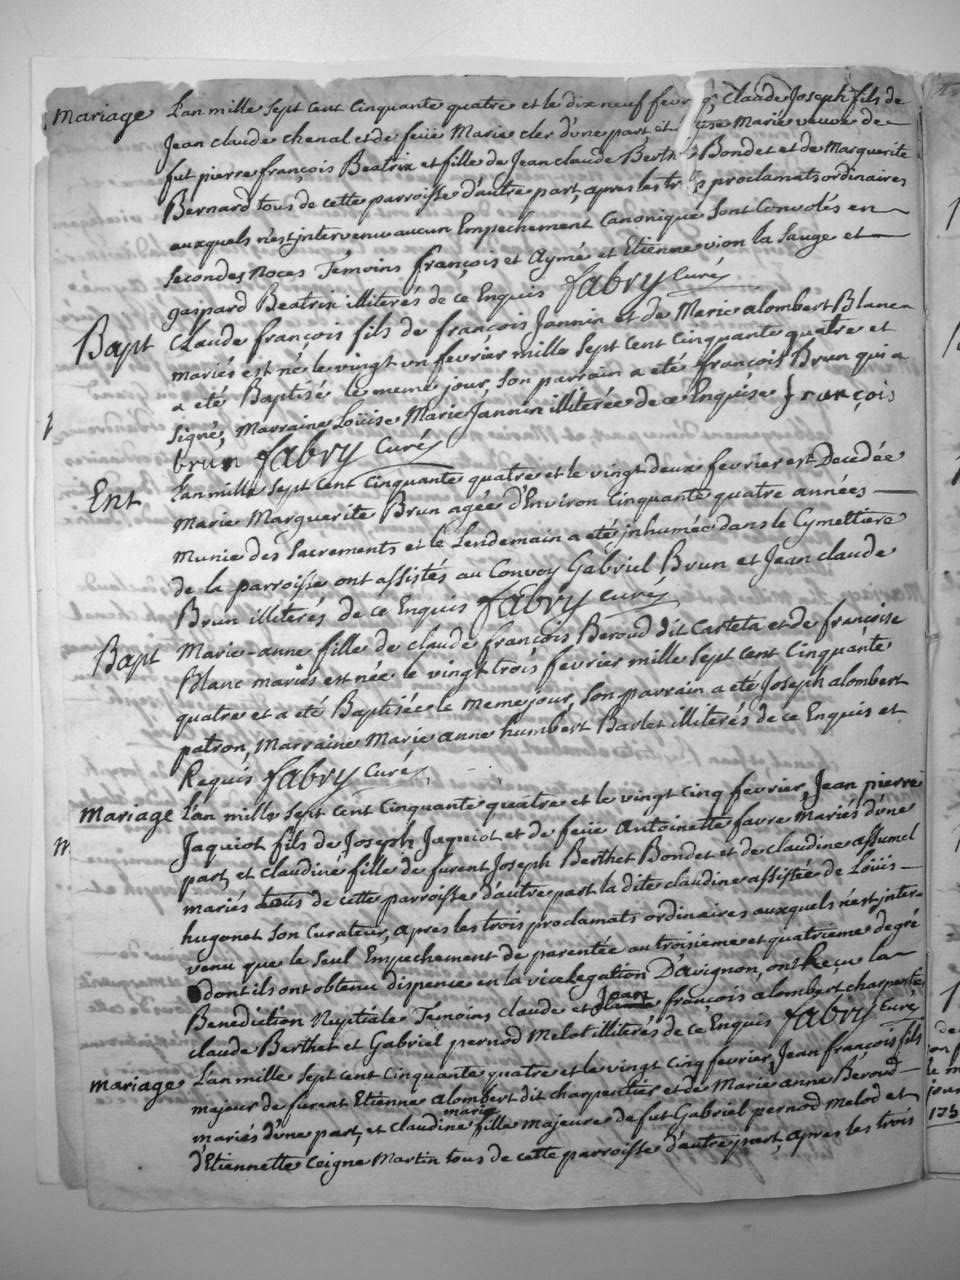 mariage L'an mille sept cent Cinquante quatre et le dix neuf fevr Claude Joseph fils de
Jean claude chenal et de feüe Marie cler d'une part et Marie veuve de
fut pierre françois Beatrix et fille de Jean claude Bert Bondet et de Marguerite
Bernard tous de cette parroisse d'autre part, apres les tr proclamats ordinaires
auxquels n'est jntervenu aucun Empechement Canonique sont Convolés en
secondes Noces Temoins françois et Aymé et Etienne vion la sauge et
gaspard Beatrix illiterés de ce Enquis fabry Curé
Bapt Claude françois fils de françois Jannin et de Marie alombert Blanc
mariés est né le vingt un fevrier mille sept cent Cinquante quatre et
a eté Baptisé le meme jour, son parrain a eté françois Brun qui a
signé, Marraine Loüise Marie Jannin illiterée de ce Enquise françois
brun fabry Curé
Ent L'an mille sept cent Cinquante quatre et le vingt deux fevrier est Decedée
Marie Marguerite Brun agée d'Environ Cinquante quatre années
munie des sacrements et le Lendemain a eté jnhumée dans le Cymettiere
de la parroisse ont assistés au Convoy Gabriel Brun et Jean claude
Brun illiterés de ce Enquis fabry curé
Bapt Marie-anne fille de claude françois Beroud dit Carteta et de françoise
Blanc mariés est née le vingt trois fevrier mille sept cent Cinquante
quatre et a eté Baptisée le meme jour, son parrain a eté Joseph alombert
patron, Marraine Marie anne humbert Barlet illiterés de ce Enquis et
Requis fabry Curé
mariage L'an mille sept cent Cinquante quatre et le vingt cinq fevrier, Jean pierre
Jaquiot fils de Joseph Jaquiot et de feüe Antoinette favre Mariés d'une
part, et claudine fille de furent Joseph Berthet Bondet et de claudine assumel
mariés tous de cette parroisse d'autre part la dite claudine assistée de Loüis
hugonet son Curateur, apres les trois proclamats ordinaires auxquels n'est jnter
venu que le seul Empechement de parentée au troisieme et quatrieme degré
dont ils ont obtenu dispence en la vicelegation D'avignon, ont Reçu la
Benediction Nuptiale Temoins claude et Jean françois alombert charpentier
claude Berthet et Gabriel pernod Melot illiterés de ce Enquis fabry Curé
mariage L'an mille sept cent Cinquante quatre et le vingt cinq fevrier, Jean françois fils
majeur de furent Etienne alombert dit charpentier et de Marie anne Béroud
mariés d'une part, et claudine marie fille majeure de fut Gabriel pernod Melod et
d'Etiennette Coigne Martin tous de cette parroisse d'autre part, apres les trois